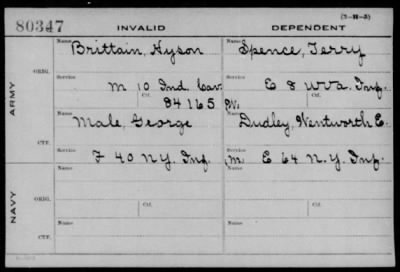 80347 INVALID DEPENDENT (3-H-3)
Name Brittain, Hyson Name Spence, Terry
ORIG.
Service M 10 Ind. Cav. Service E 8 W Va. Inf.
ARMY
Ctf. 84165 Ctf.
Name Male, George Name Dudley, Wentworth E.
CTF.
Service F 40 N.Y. Inf. Service M. E 64 N.Y. Inf.
Name Name
ORIG.
NAVY
Ctf. Ctf.
Name Name
CTF.